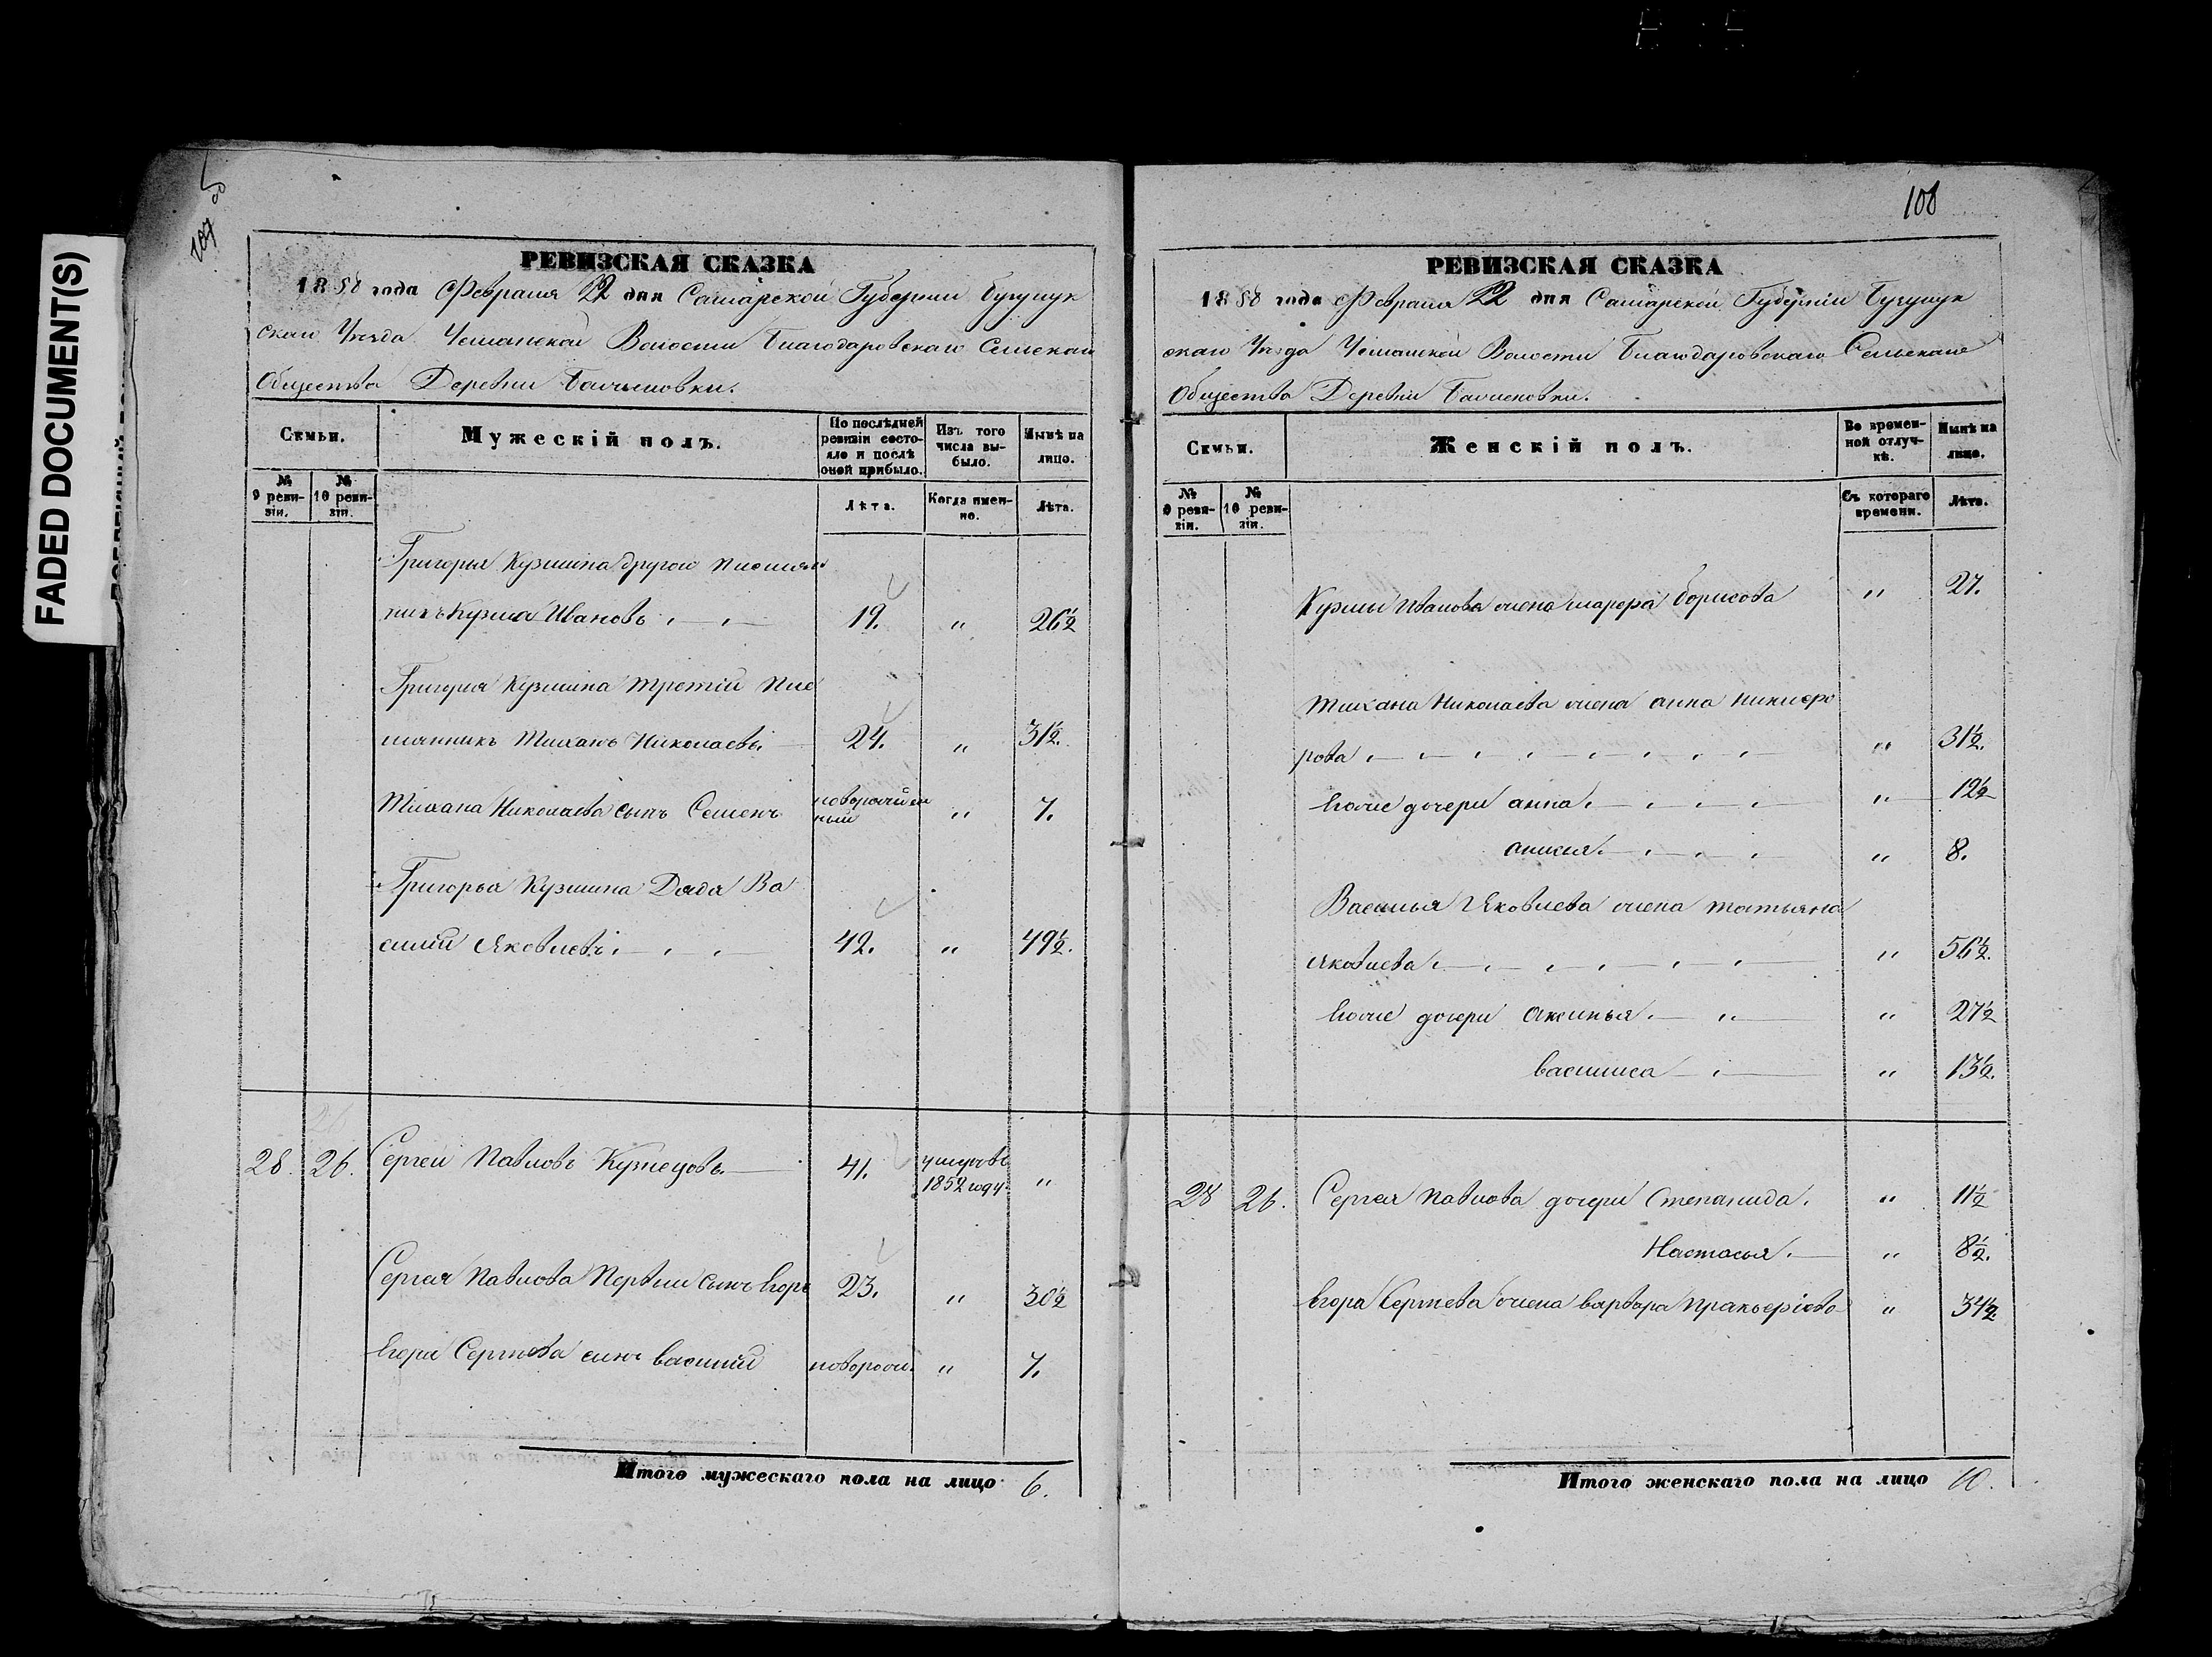 FADED DOCUMENT(S)
107
108
РЕВИЗСКАЯ СКАЗКА
1858 года Февраля 22 дня Самарской Губернии Бузулук
скаго Уезда Волости Благодаровскаго Сельскаго
Общества Деревни
Семьи.
Мужескій полъ.
По послѣдней ревизіи состояло и послѣ оной прибыло.
Изъ того числа выбыло.
Нынѣ на лицо.
№ 9 ревизіи.
№ 10 ревизіи.
Лѣта.
Когда именно.
Лѣта.
Григорья Кузмина другой племян
никъ Кузма Ивановъ 19. " 26½
Григорья Кузмина третій пле
мянникъ Николаевъ 24. " 31½.
Николаева сынъ Семенъ новорожден
ный " 7.
Григорья Кузмина Дядя Ва
силій Яковлевъ 42. " 49½.
28. 26. Сергей Павловъ Кузнецовъ 41. умеръ въ
1852 году "
Сергея Павлова Первый сынъ Егоръ 23. " 30½
Егора Сергеева сынъ Василий новорож. " 7.
Итого мужескаго пола на лицо 6.
РЕВИЗСКАЯ СКАЗКА
1858 года Февраля 22 дня Самарской Губерніи Бузулук
скаго Уезда Волости Благодаровскаго Сельскаго
Общества Деревни
Семьи.
Женскій полъ.
Во временной отлучкѣ.
Нынѣ на лицо.
№ 9 ревизіи.
№ 10 ревизіи.
Съ котораго времени.
Лѣта.
Кузмы Иванова жена Борисова " 27.
Николаева жена Анна Никифо
рова " 31½.
Егоже дочери Анна " 12½
" 8.
Василья Яковлева жена Татьяна
Яковлева " 56½.
Егоже дочери Аксинья " 27½
Василиса " 13½.
28 26. Сергея Павлова дочери Степанида. " 11½
Настасья. " 8½.
Егора Сергеева жена Варвара " 34½
Итого женскаго пола на лицо 10.